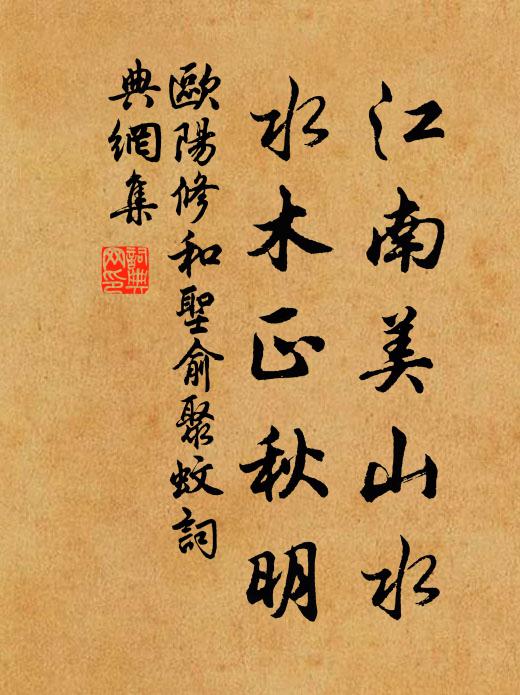 江南美山水
水木正秋明
歐陽修和聖俞聚蚊詞
典網集
詞典網印